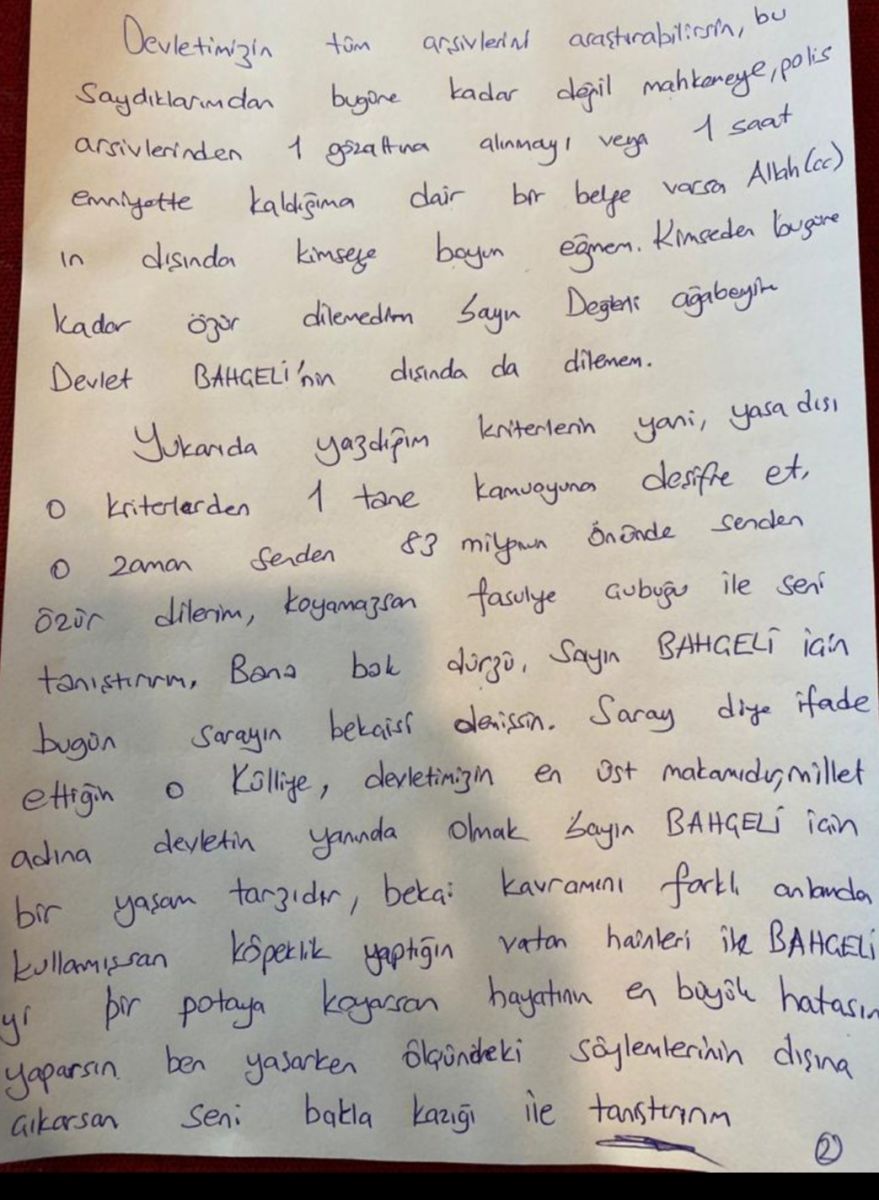 Devletimizin tüm arşivlerini araştırabilirsin, bu
saydıklarımdan bugüne kadar değil mahkemeye, polis
arsivlerinden 1 gözaltına alınmayı veya 1 saat
emniyette kaldığıma dair bir belge varsa Allah (cc)
ın dışında kimseye boyun eğmem. Kimseden bugüne
kadar özür dilemedim Sayın Değerli ağabeyim
Devlet BAHÇELİ'nin dışında da dilemem.
Yukarıda yazdığım kriterlerin yani, yasa dışı
O kriterlerden 1 tane kamuoyuna desifre et,
O zaman senden 83 milyonun önünde senden
özür dilerim, koyamazsan fasulye çubuğu ile seni
tanıştırırım, Bana bak dürzü, Sayın BAHÇELİ için
bugün sarayın bekaisi demissin. Saray diye ifade
ettiğin o Külliye, devletimizin en üst makamıdır, millet
adına devletin yanında olmak Sayın BAHÇELİ için
bir yaşam tarzıdır, bekai kavramını farklı anlamda
kullanmışsan köpeklik yaptığın vatan hainleri ile BAHÇELİ
yi bir potaya koyarsan hayatının en büyük hatasın
yaparsın ben yaşarken ölçündeki söylemlerinin dışına
çıkarsan seni bakla kazığı ile tanıştırırım
2